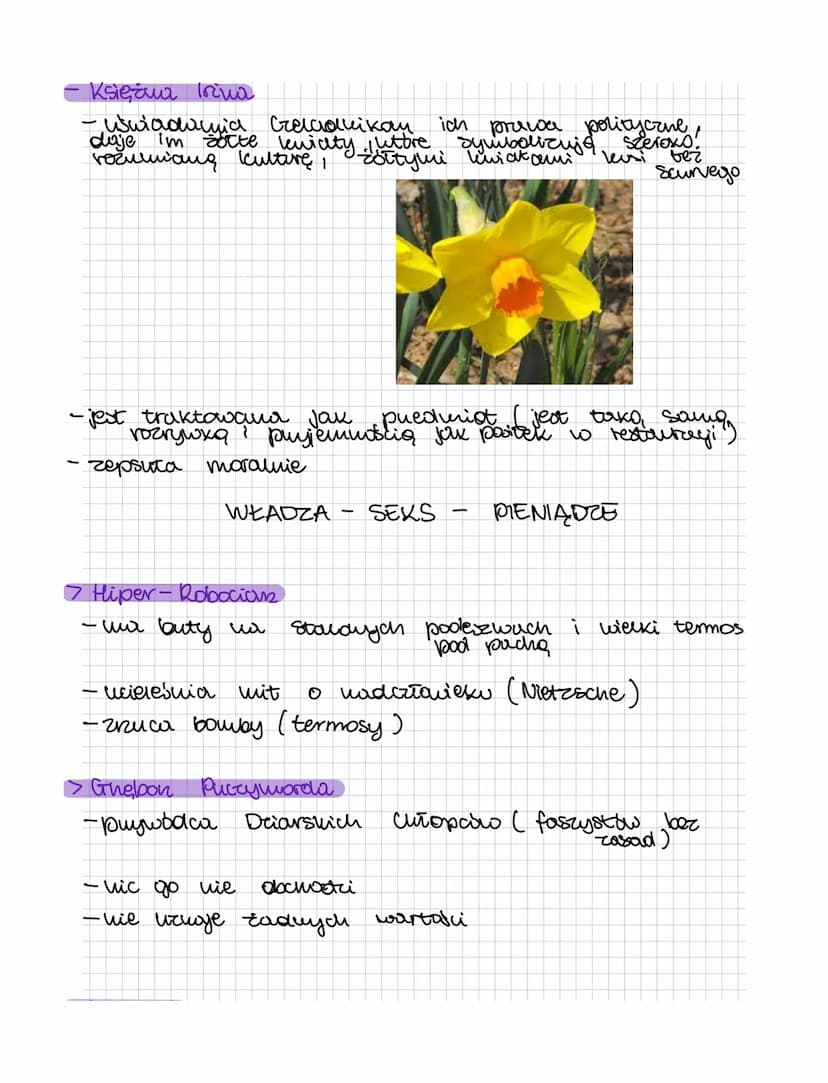 - Księżna Irina
- uświadamia Czeladnikom ich prawa polityczne,
daje im żółte kwiaty, które symbolizują szeroko
rozumianą kulturę, żółtymi kwiatami karmi bez
Scurvego
- jest traktowana jak przedmiot (jest taką samą
rozrywką i przyjemnością jak posiłek w restauracji)
- zepsuta moralnie
WŁADZA - SEKS - PIENIĄDZE
> Hiper-Robociarz
- ma buty na stalowych podeszwach i wielki termos
pod pachą
- ucieleśnia mit o nadczłowieku (Nietzsche)
- zrzuca bomby (termosy)
> Gnębon Puczymorda
- przywódca Dziarskich Chłopców (faszystów bez
zasad)
- nic go nie obchodzi
- nie uznaje żadnych wartości